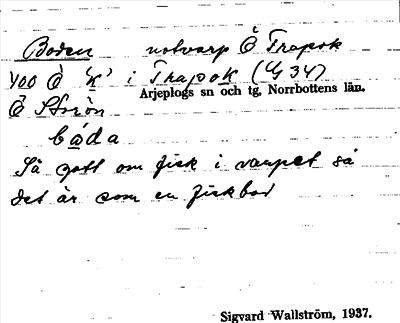 Boden notvarp Ö Trapok
400 Ö K' i Trapok (G 34)
Arjeplogs sn och tg, Norrbottens län.
Ö
båda
Så gott om fisk i varpet så
det är som en fiskbod
Sigvard Wallström, 1937.